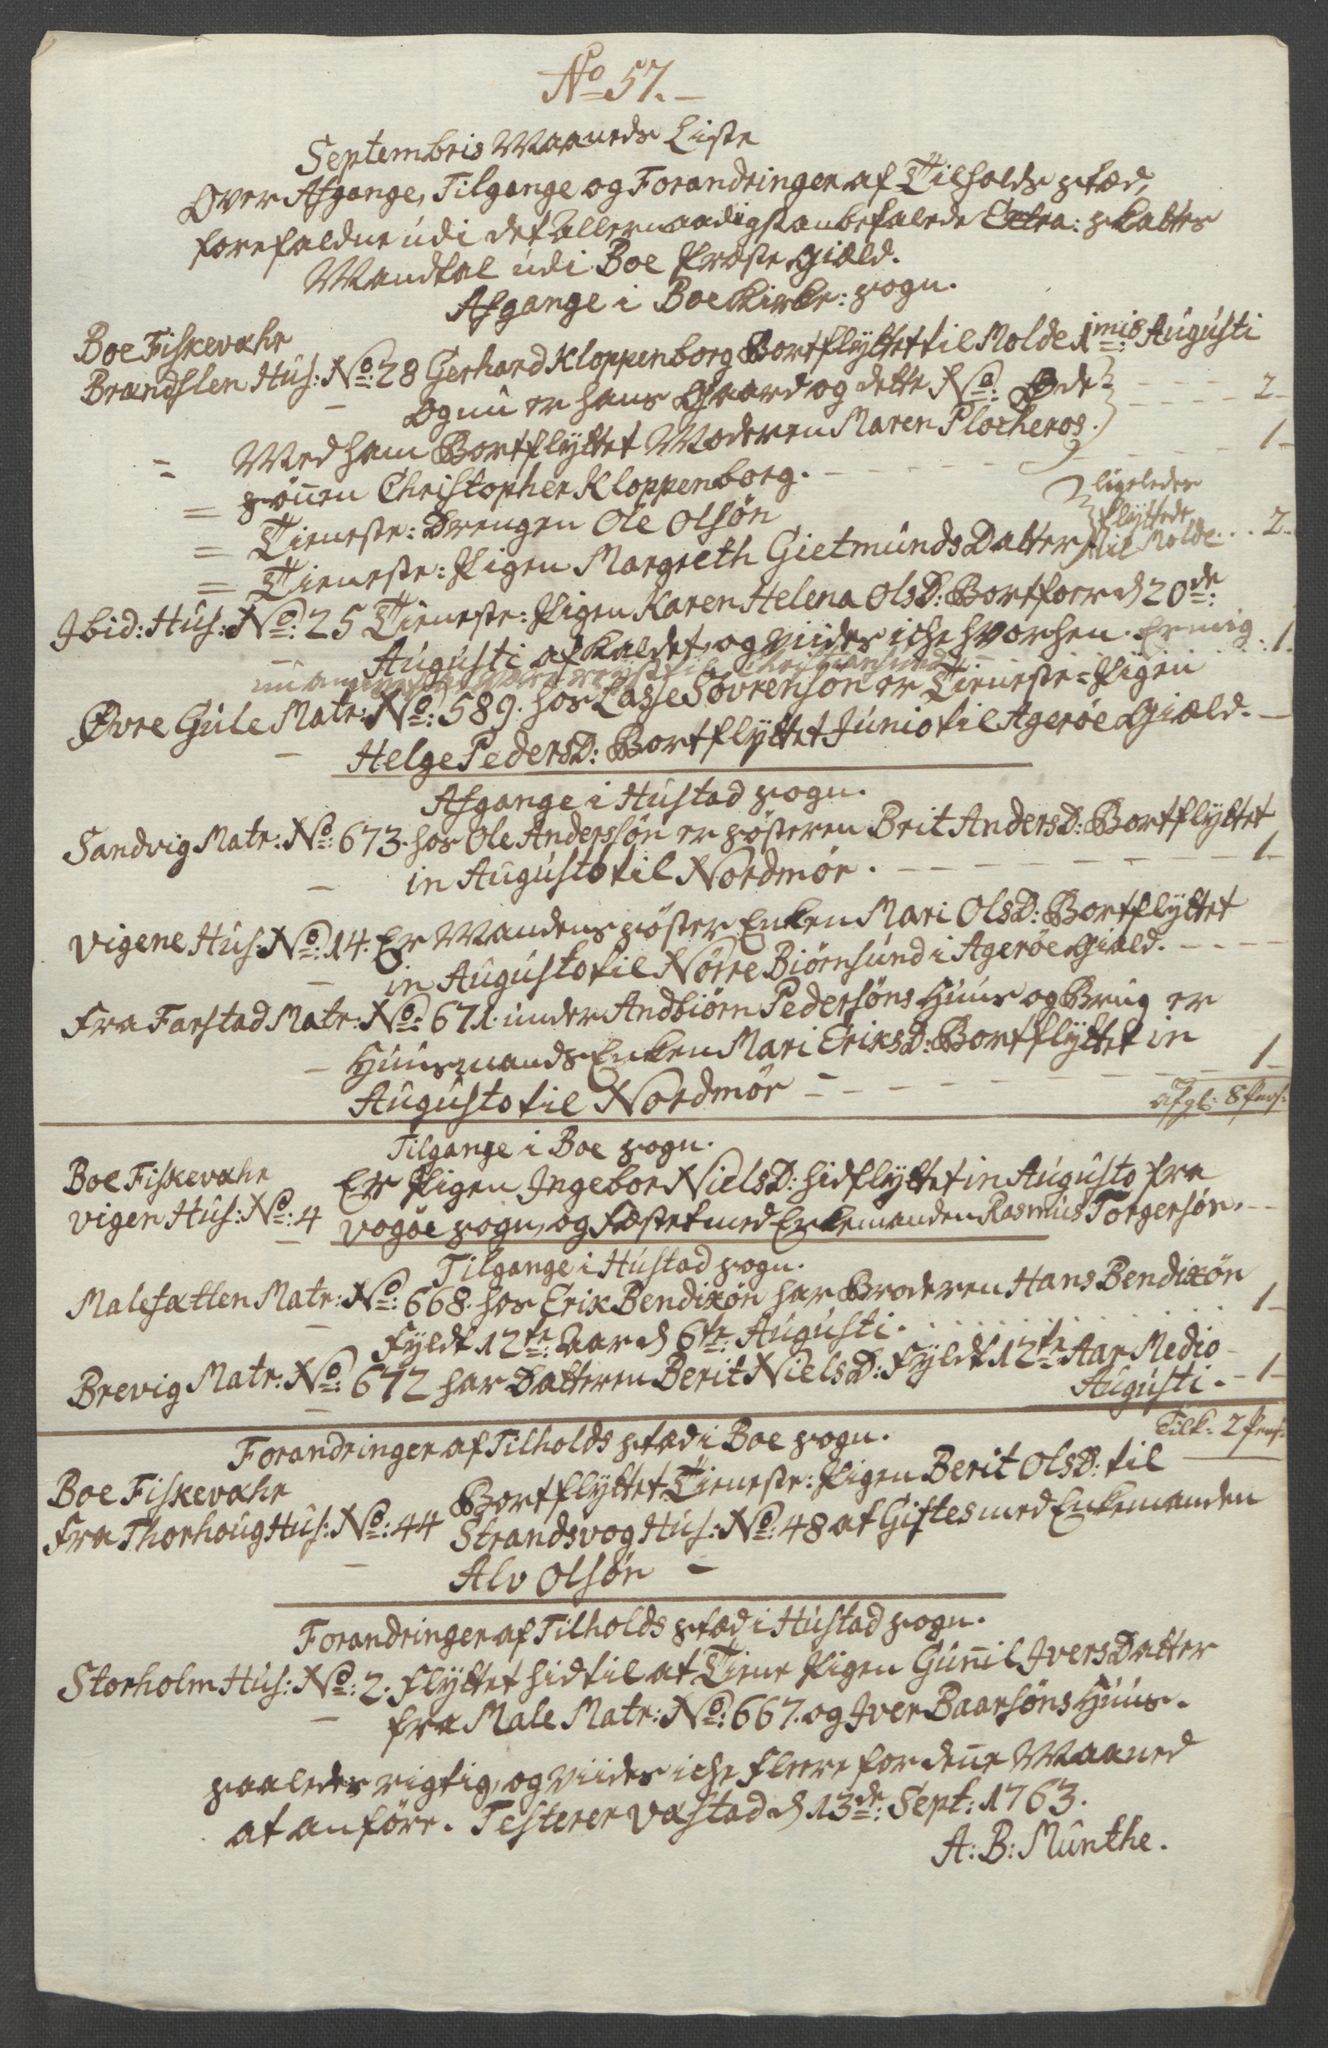 No 57.
Septembris Maaneds Liste
Over Afgange, Tilgange og Forandringer af Tilholds stæd,
forefaldne udi det allernaadigst anbefalede Extra: skattes
Mandtal udi Boe Præste Giæld.
Afgange i Boe Kirke: sogn.
Boe Fiskevahr
Brandslen Hus: No: 28 Gerhard Kloppenborg Bortflyttet til Molde 1mis Augusti
og nu er hans Gaard og dette No: Øde - - - - 2 -
= Med ham Bortflyttet Moderen Maren Plocheros. - - - - 1 -
= sønnen Christopher Kloppenborg.
= Tieneste: Drengen Ole Olsøn
= Tieneste: Pigen Margreth Gietmunds Datter ligeledes flyttede til Molde . . 2 -
Ibid: Hus: No: 25 Tieneste: Pigen Karen Helena OlsD: Bortfoer d 20de:
Augusti afkaldet, og viides iche hvorhen. Er mig - 1 -
nu
Øvre Gule Matr: No: 589. hos Lasse Søvrensøn er Tieneste-Pigen
Helge PedersD: Bortflyttet Junio til Agerøe Giæld. -
Afgange i Hustad sogn.
Sandvig Matr: No: 673. hos Ole Anderssøn er søsteren Brit AndersD: Bortflyttet
in Augusto til Nordmør. - - - - 1 -
Vigene Hus: No: 14. Er Mandens søster Enken Mari OlsD: Bortflyttet
in Augusto til Nørre Biørnsund i Agerøe Giæld. - - - -
Fra Farstad Matr: No: 671. under Andbiørn Pedersøns Huus og Brug er
Huusmands Enken Mari EriksD: Bortflyttet in
Augusto til Nordmør - - - - 1 -
Afgl: 8 Pers:
Tilgange i Boe sogn.
Boe Fiskevahr
Vigen Hus: No: 4
Er Pigen Ingebor NielsD: hidflyttet in Augusto fra
Vogøe sogn, og fæstet med Enkemanden Rasmus Torgersøn. - -
Tilgange i Hustad sogn.
Malefætten Matr: No: 668. hos Erik Bendixøn har Broderen Hans Bendixøn
Fyldt 12te: Aar d 6te: Augusti. . . . . . 1 -
Brevig Matr: No: 672 har Datteren Berit NielsD: Fyldt 12te Aar Medio
Augusti. - 1 -
Tilk: 2 Pers:
Forandringer af Tilholds stæd i Boe sogn.
Boe Fiskevahr
Fra Thorhoug Hus: No: 44
Bortflyttet Tieneste: Pigen Berit OlsD: til
Strandsvog Hus: No: 48 at Giftes med Enkemanden
Alv Olsøn -
Forandringer af Tilholds stæd i Hustad sogn.
Storholm Hus: No: 2. flyttet hid til at Tiene Pigen Gunnil Ivers Datter
fra Male Matr: No: 667. og Iver Baarsøns Huus.
saaledes rigtig, og viides iche fleere for denne Maaned
at anføre. Testerer Vastad d 13de: Sept: 1763.
A: B: Munthe.